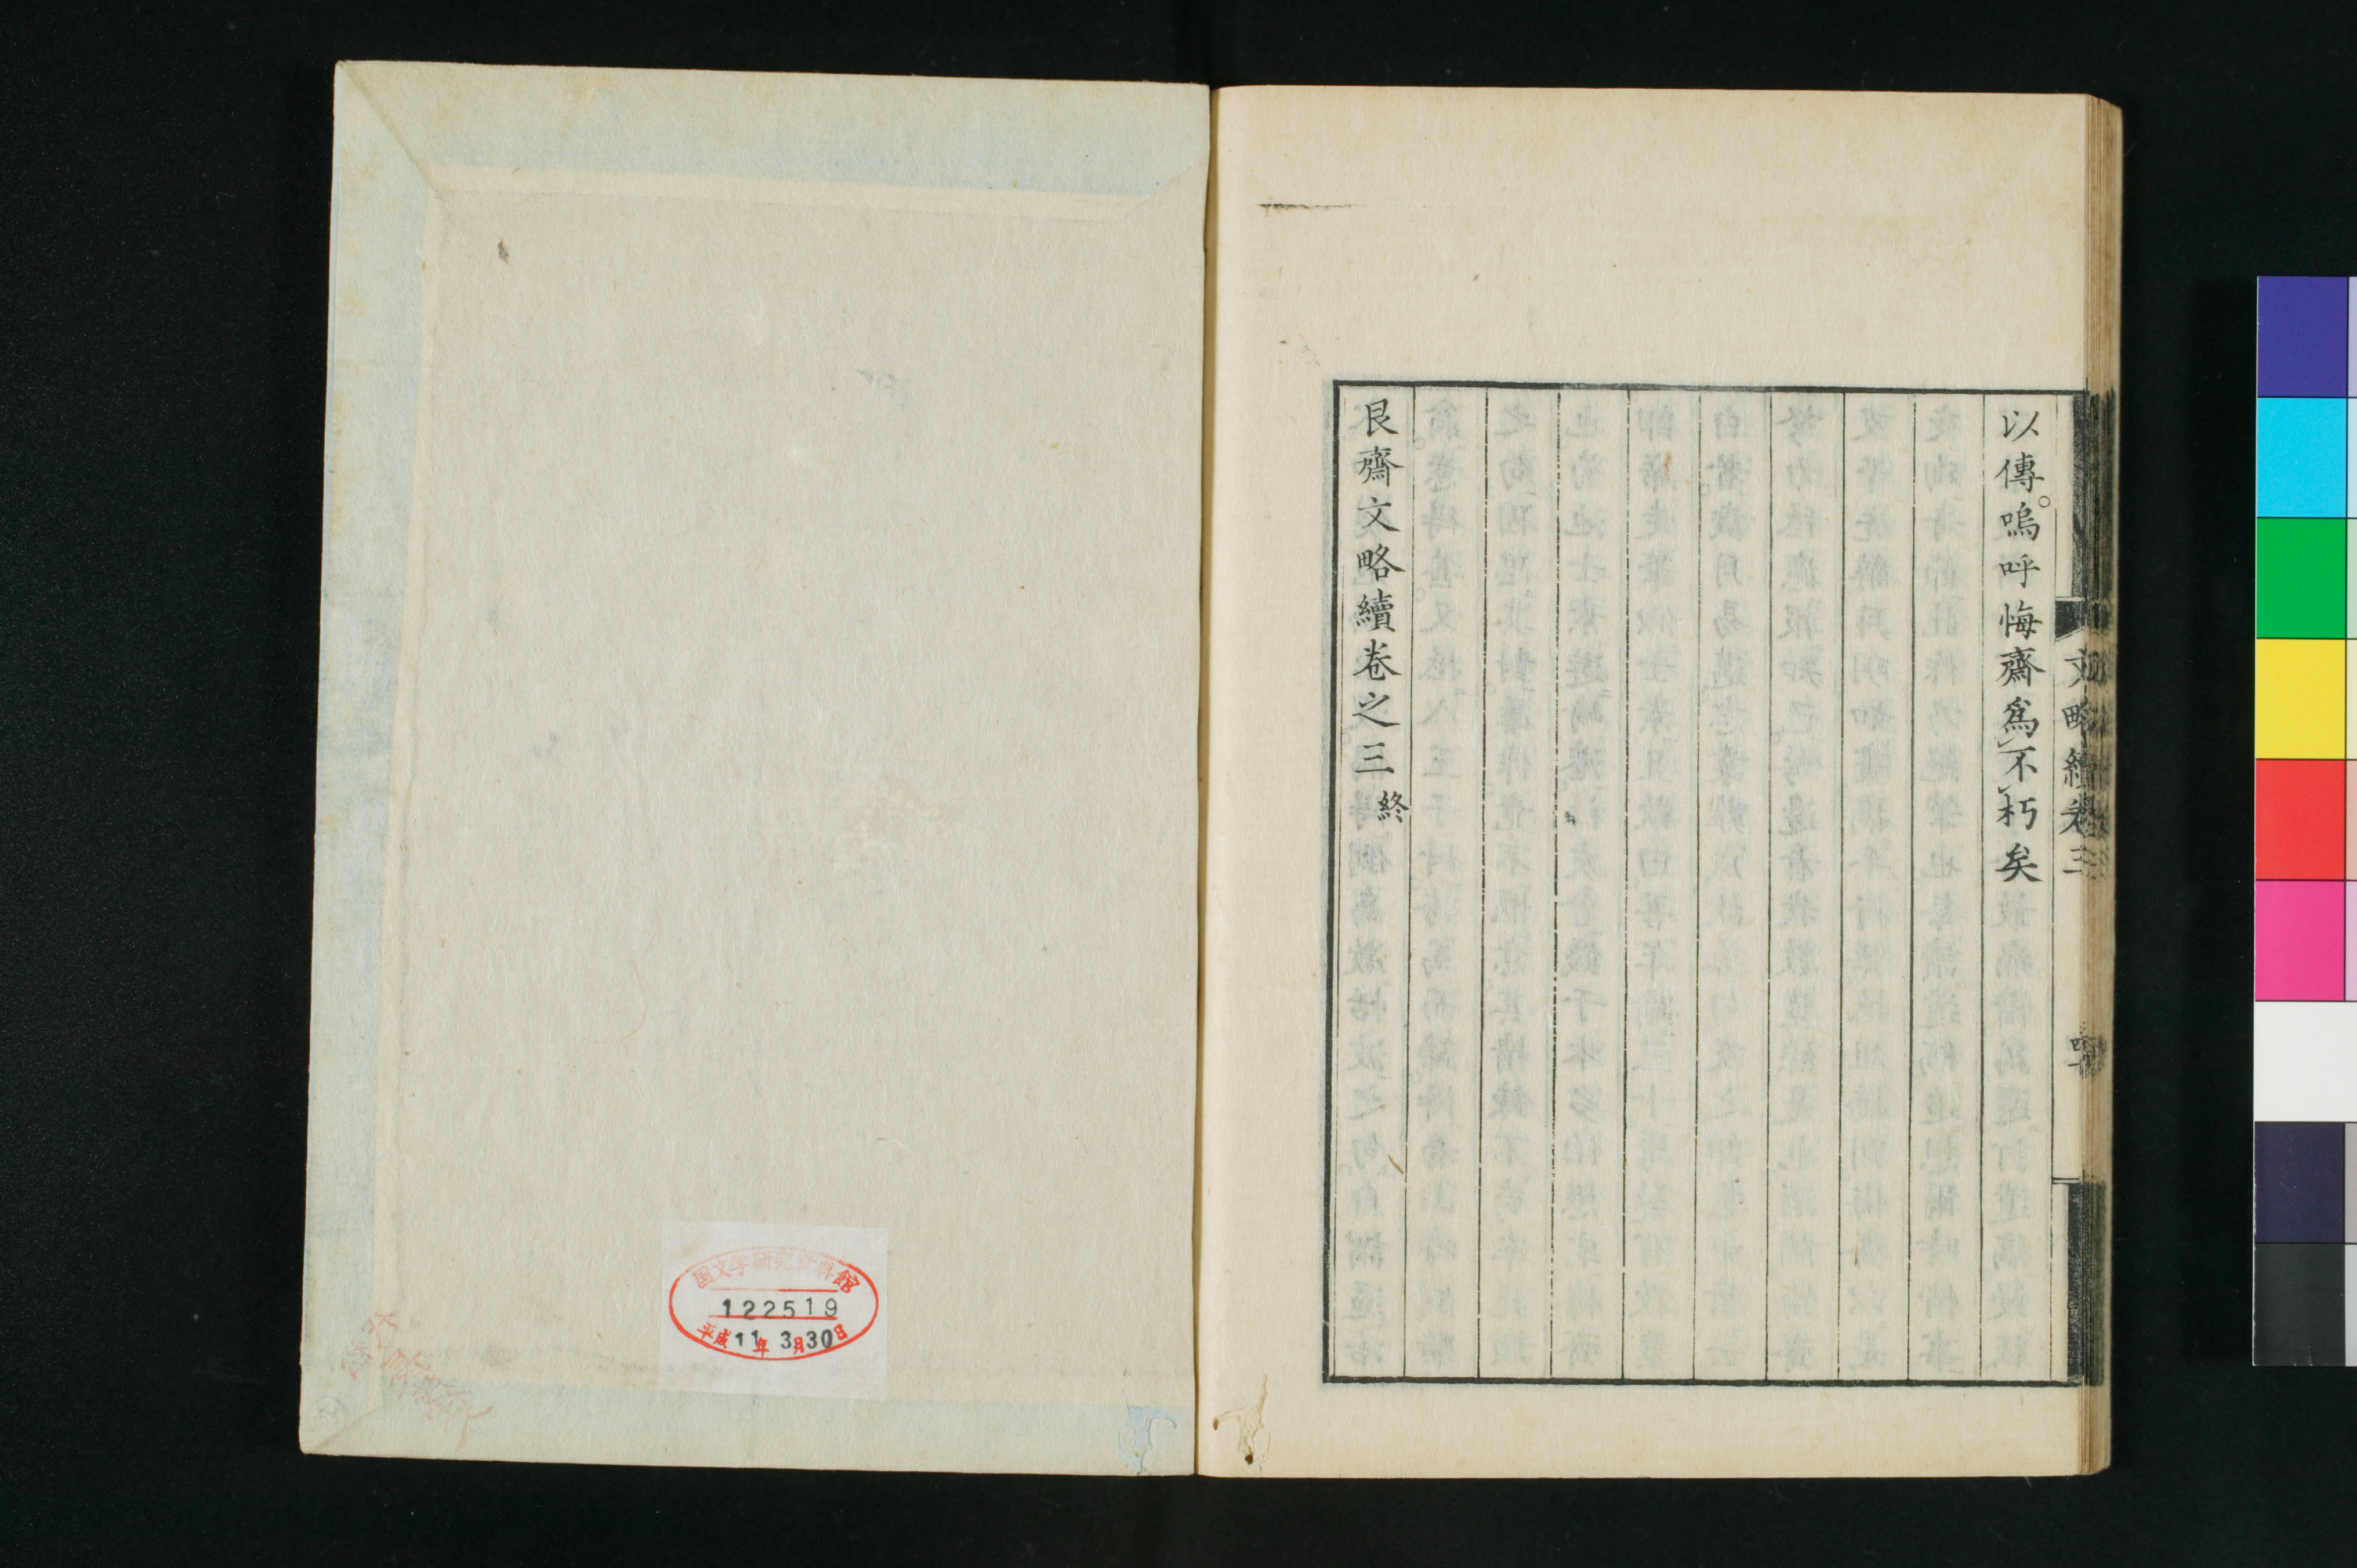 以傳。嗚呼悔齋爲不朽矣
艮齋文略續卷之三終
文略續卷三
国文学研究資料館
122519
平成11年3月30日